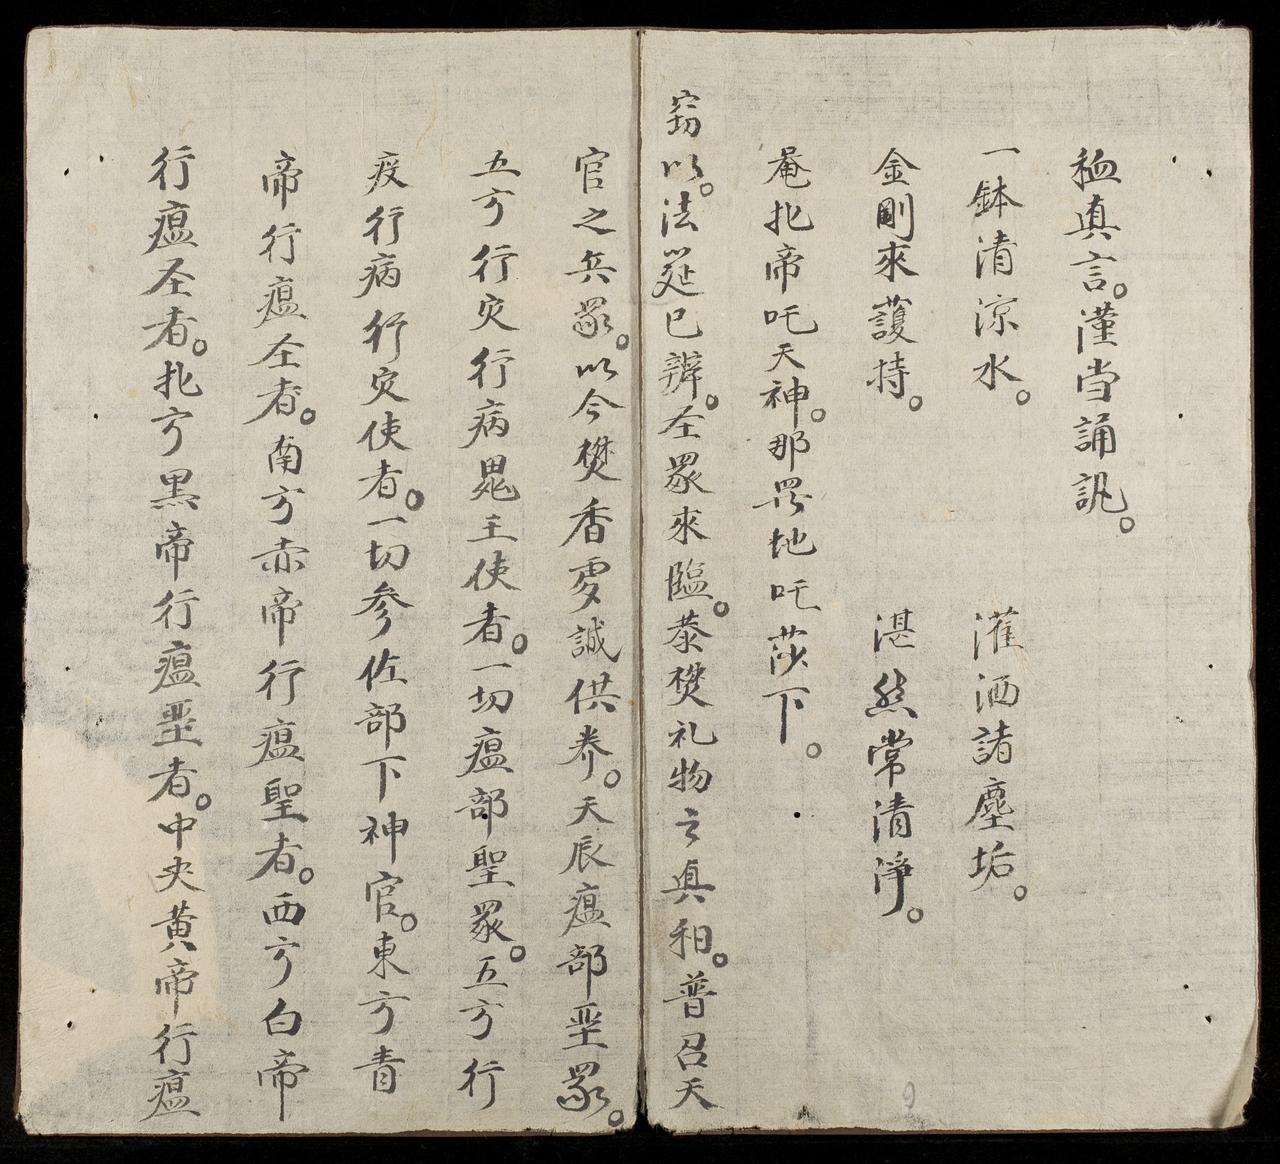 䘏真言。謹当誦訊。
一鉢清涼水。 灌洒諸塵垢。
金剛來護持。 湛然常清淨。
菴扎帝吒天神。那畧地吒莎下。
窃以。法筵已辨。圣眾來臨。恭焚礼物云真和。普召天
官之兵眾。以今焚香虔誠供养。天辰瘟部聖眾。
五方行灾行病鬼王使者。一切瘟部聖眾。五方行
疫行病行灾使者。一切参佐部下神官。東方青
帝行瘟圣者。南方赤帝行瘟聖者。西方白帝
行瘟圣者。北方黑帝行瘟聖者。中央黄帝行瘟